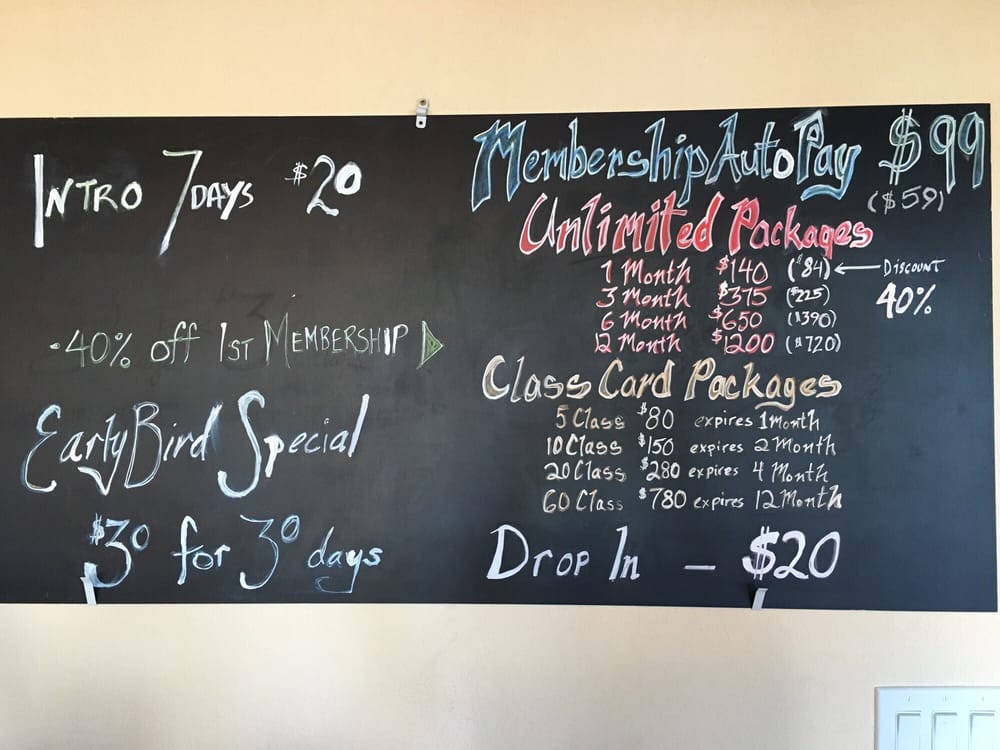 Intro 7 days $20
-40% off 1st Membership
Early Bird Special
$30 for 30 days
Membership Auto Pay $99
($59)
Unlimited Packages
1 Month $140 ($84) ← Discount
3 Month $375 ($225) 40%
6 Month $650 ($390)
12 Month $1200 ($720)
Class Card Packages
5 Class $80 expires 1 month
10 Class $150 expires 2 Month
20 Class $280 expires 4 Month
60 Class $780 expires 12 Month
Drop In - $20